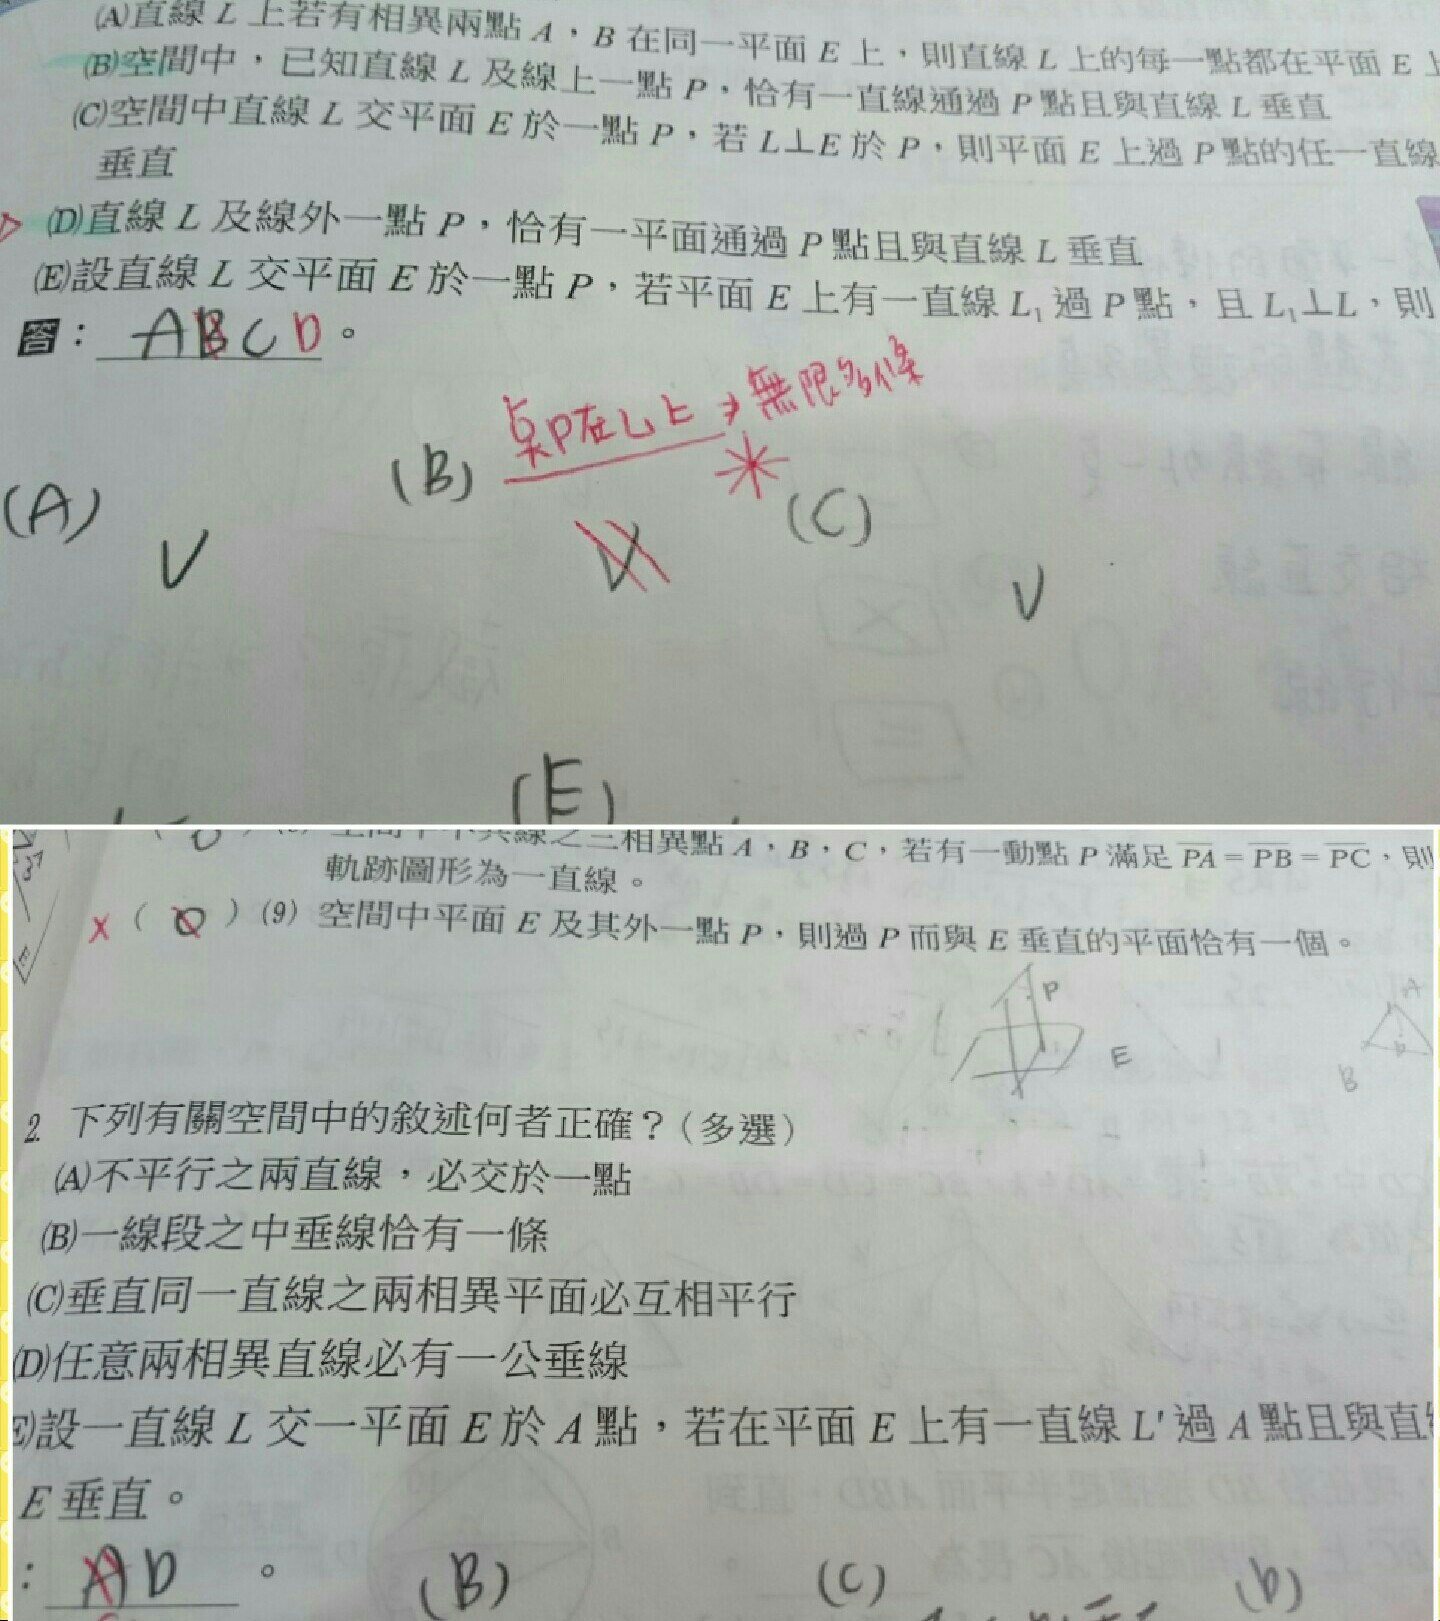 (A)直線 L 上若有相異兩點 A，B 在同一平面 E 上，則直線 L 上的每一點都在平面 E
(B)空間中，已知直線 L 及線上一點 P，恰有一直線通過 P 點且與直線 L 垂直
(C)空間中直線 L 交平面 E 於一點 P，若 L⊥E 於 P，則平面 E 上過 P 點的任一直線
垂直
(D)直線 L 及線外一點 P，恰有一平面通過 P 點且與直線 L 垂直
(E)設直線 L 交平面 E 於一點 P，若平面 E 上有一直線 L₁ 過 P 點，且 L₁⊥L，則
答：ABCD。
點P在L上→無限多條
(A) (B) (C)
V V V
(E)
三相異點 A，B，C，若有一動點 P 滿足 PA = PB = PC，則
軌跡圖形為一直線。
×（ O ）(9) 空間中平面 E 及其外一點 P，則過 P 而與 E 垂直的平面恰有一個。
P
E
A
B
2. 下列有關空間中的敘述何者正確？（多選）
(A)不平行之兩直線，必交於一點
(B)一線段之中垂線恰有一條
(C)垂直同一直線之兩相異平面必互相平行
(D)任意兩相異直線必有一公垂線
(E)設一直線 L 交一平面 E 於 A 點，若在平面 E 上有一直線 L' 過 A 點且與直
E 垂直。
：AD。 (B) (C) (D)